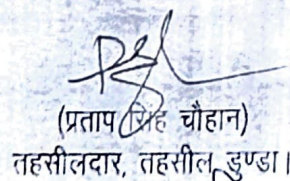 (प्रताप सिंह चौहान)
तहसीलदार, तहसील डुण्डा।